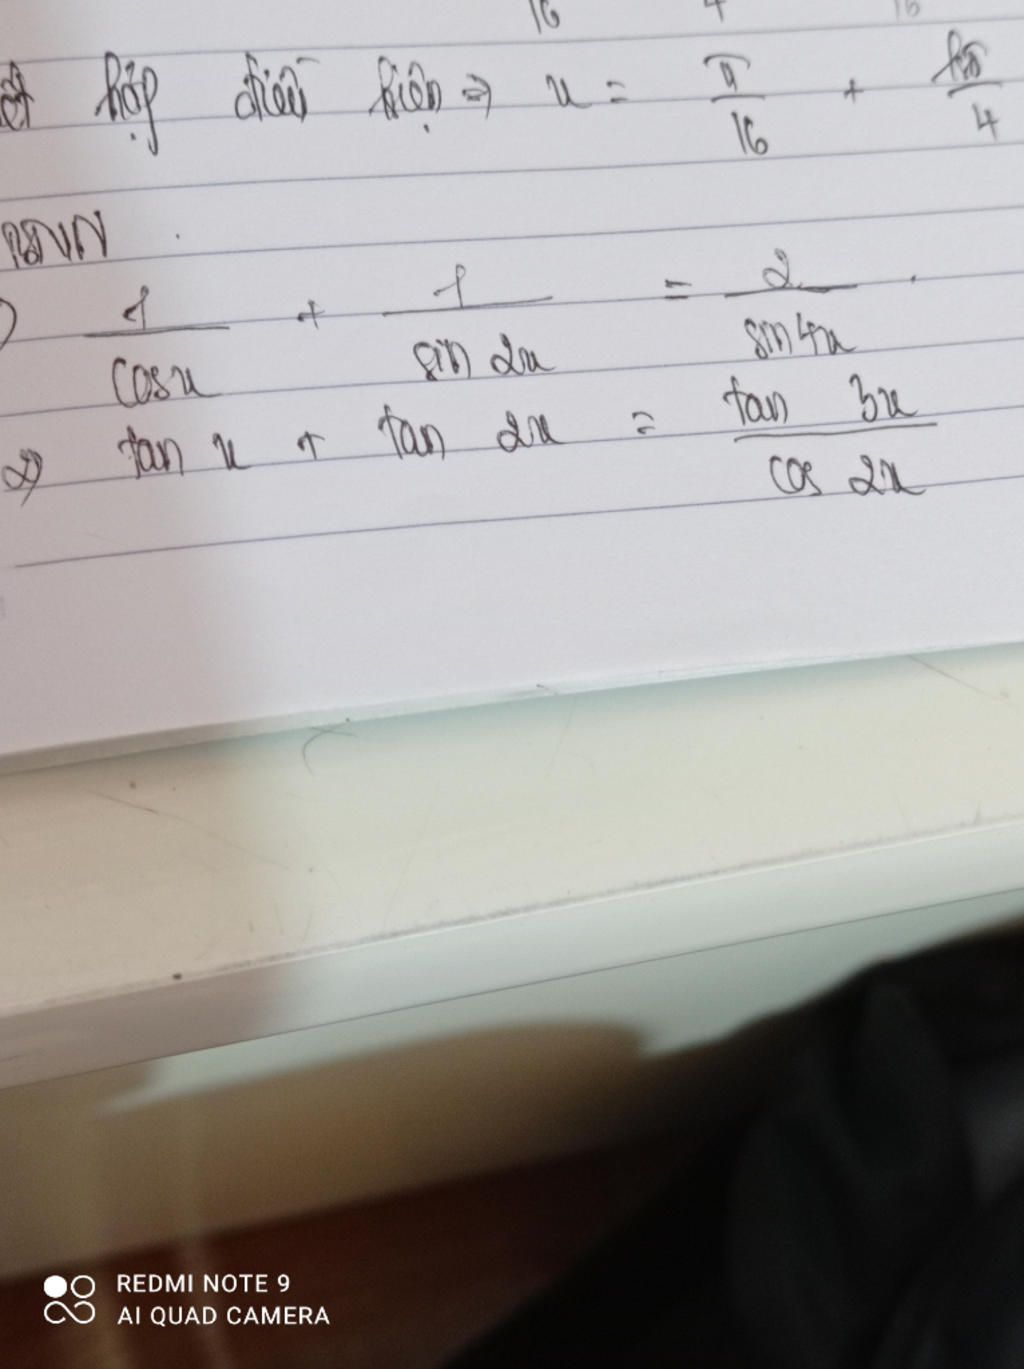 16 4 16
hợp điều kiện ⇒ x = π/16 + kπ/4
BTVN
) 1/cosx + 1/sin 2x = 2/sin4x
2) tan x + tan 2x = tan 3x/cos 2x
REDMI NOTE 9
AI QUAD CAMERA